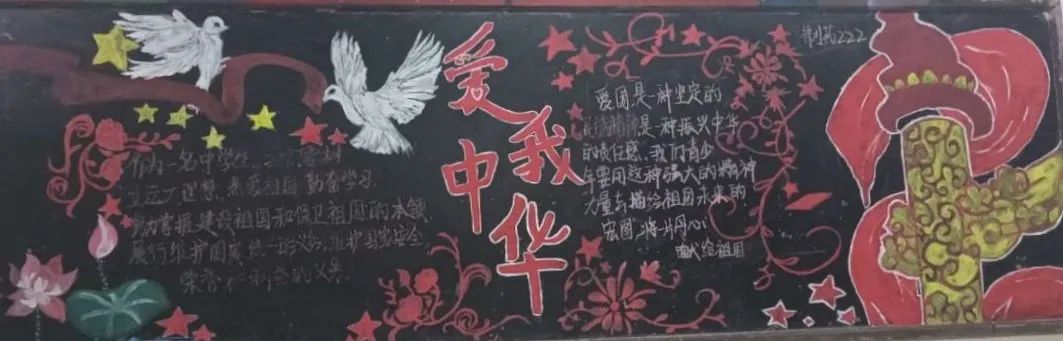 爱我中华
制药222
作为一名中学生
立远大理想,热爱祖国勤奋学习
努力掌握建设祖国和保卫祖国的本领
履行维护国家统一的义务,维护国家安全
荣誉和利益的义务
爱国是一种坚定的
精神是一种振兴中华
的责任感,我们青少
年要用这种强大的精神
力量去描绘祖国未来的
宏图,将一片丹心
献给祖国